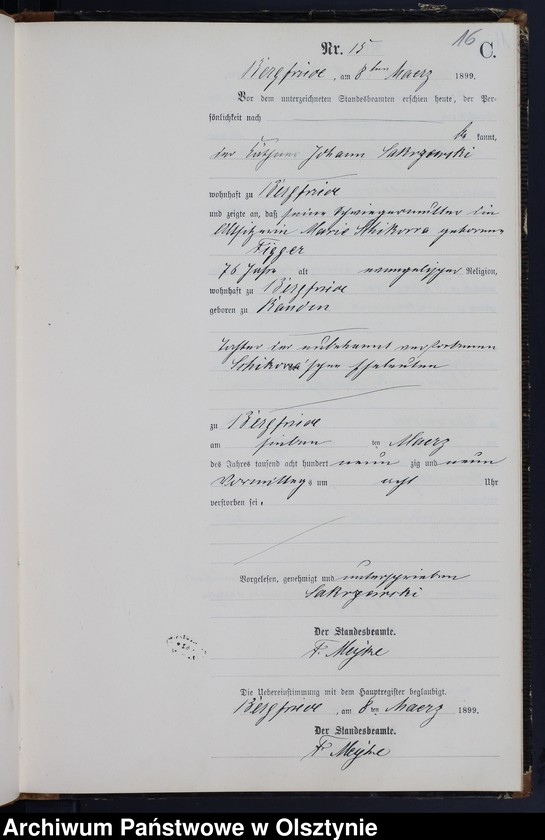 16
Nr. 15
C.
Bergfriede, am 8ten Maerz 1899.
Vor dem unterzeichneten Standesbeamten erschien heute, der Per-
sönlichkeit nach
be kannt,
der Käthner Johann Sakrzewski
wohnhaft zu Bergfriede
und zeigte an, daß seine Schwiegermutter die
Altsitzerin Marie Schikorra geborene
Figger
76 Jahre alt evangelischer Religion,
wohnhaft zu Bergfriede
geboren zu Randen
Tochter der unbekannt verstorbenen
Schikorra'schen Eheleuten
zu Bergfriede
am sieben ten Maerz
des Jahres tausend acht hundert neun zig und neun
Vormittags um acht Uhr
verstorben sei.
Vorgelesen, genehmigt und unterschrieben
Sakrzewski
Der Standesbeamte.
F. Meyke
Die Uebereinstimmung mit dem Hauptregister beglaubigt.
Bergfriede, am 8 ten Maerz 1899.
Der Standesbeamte.
F. Meyke
Archiwum Państwowe w Olsztynie